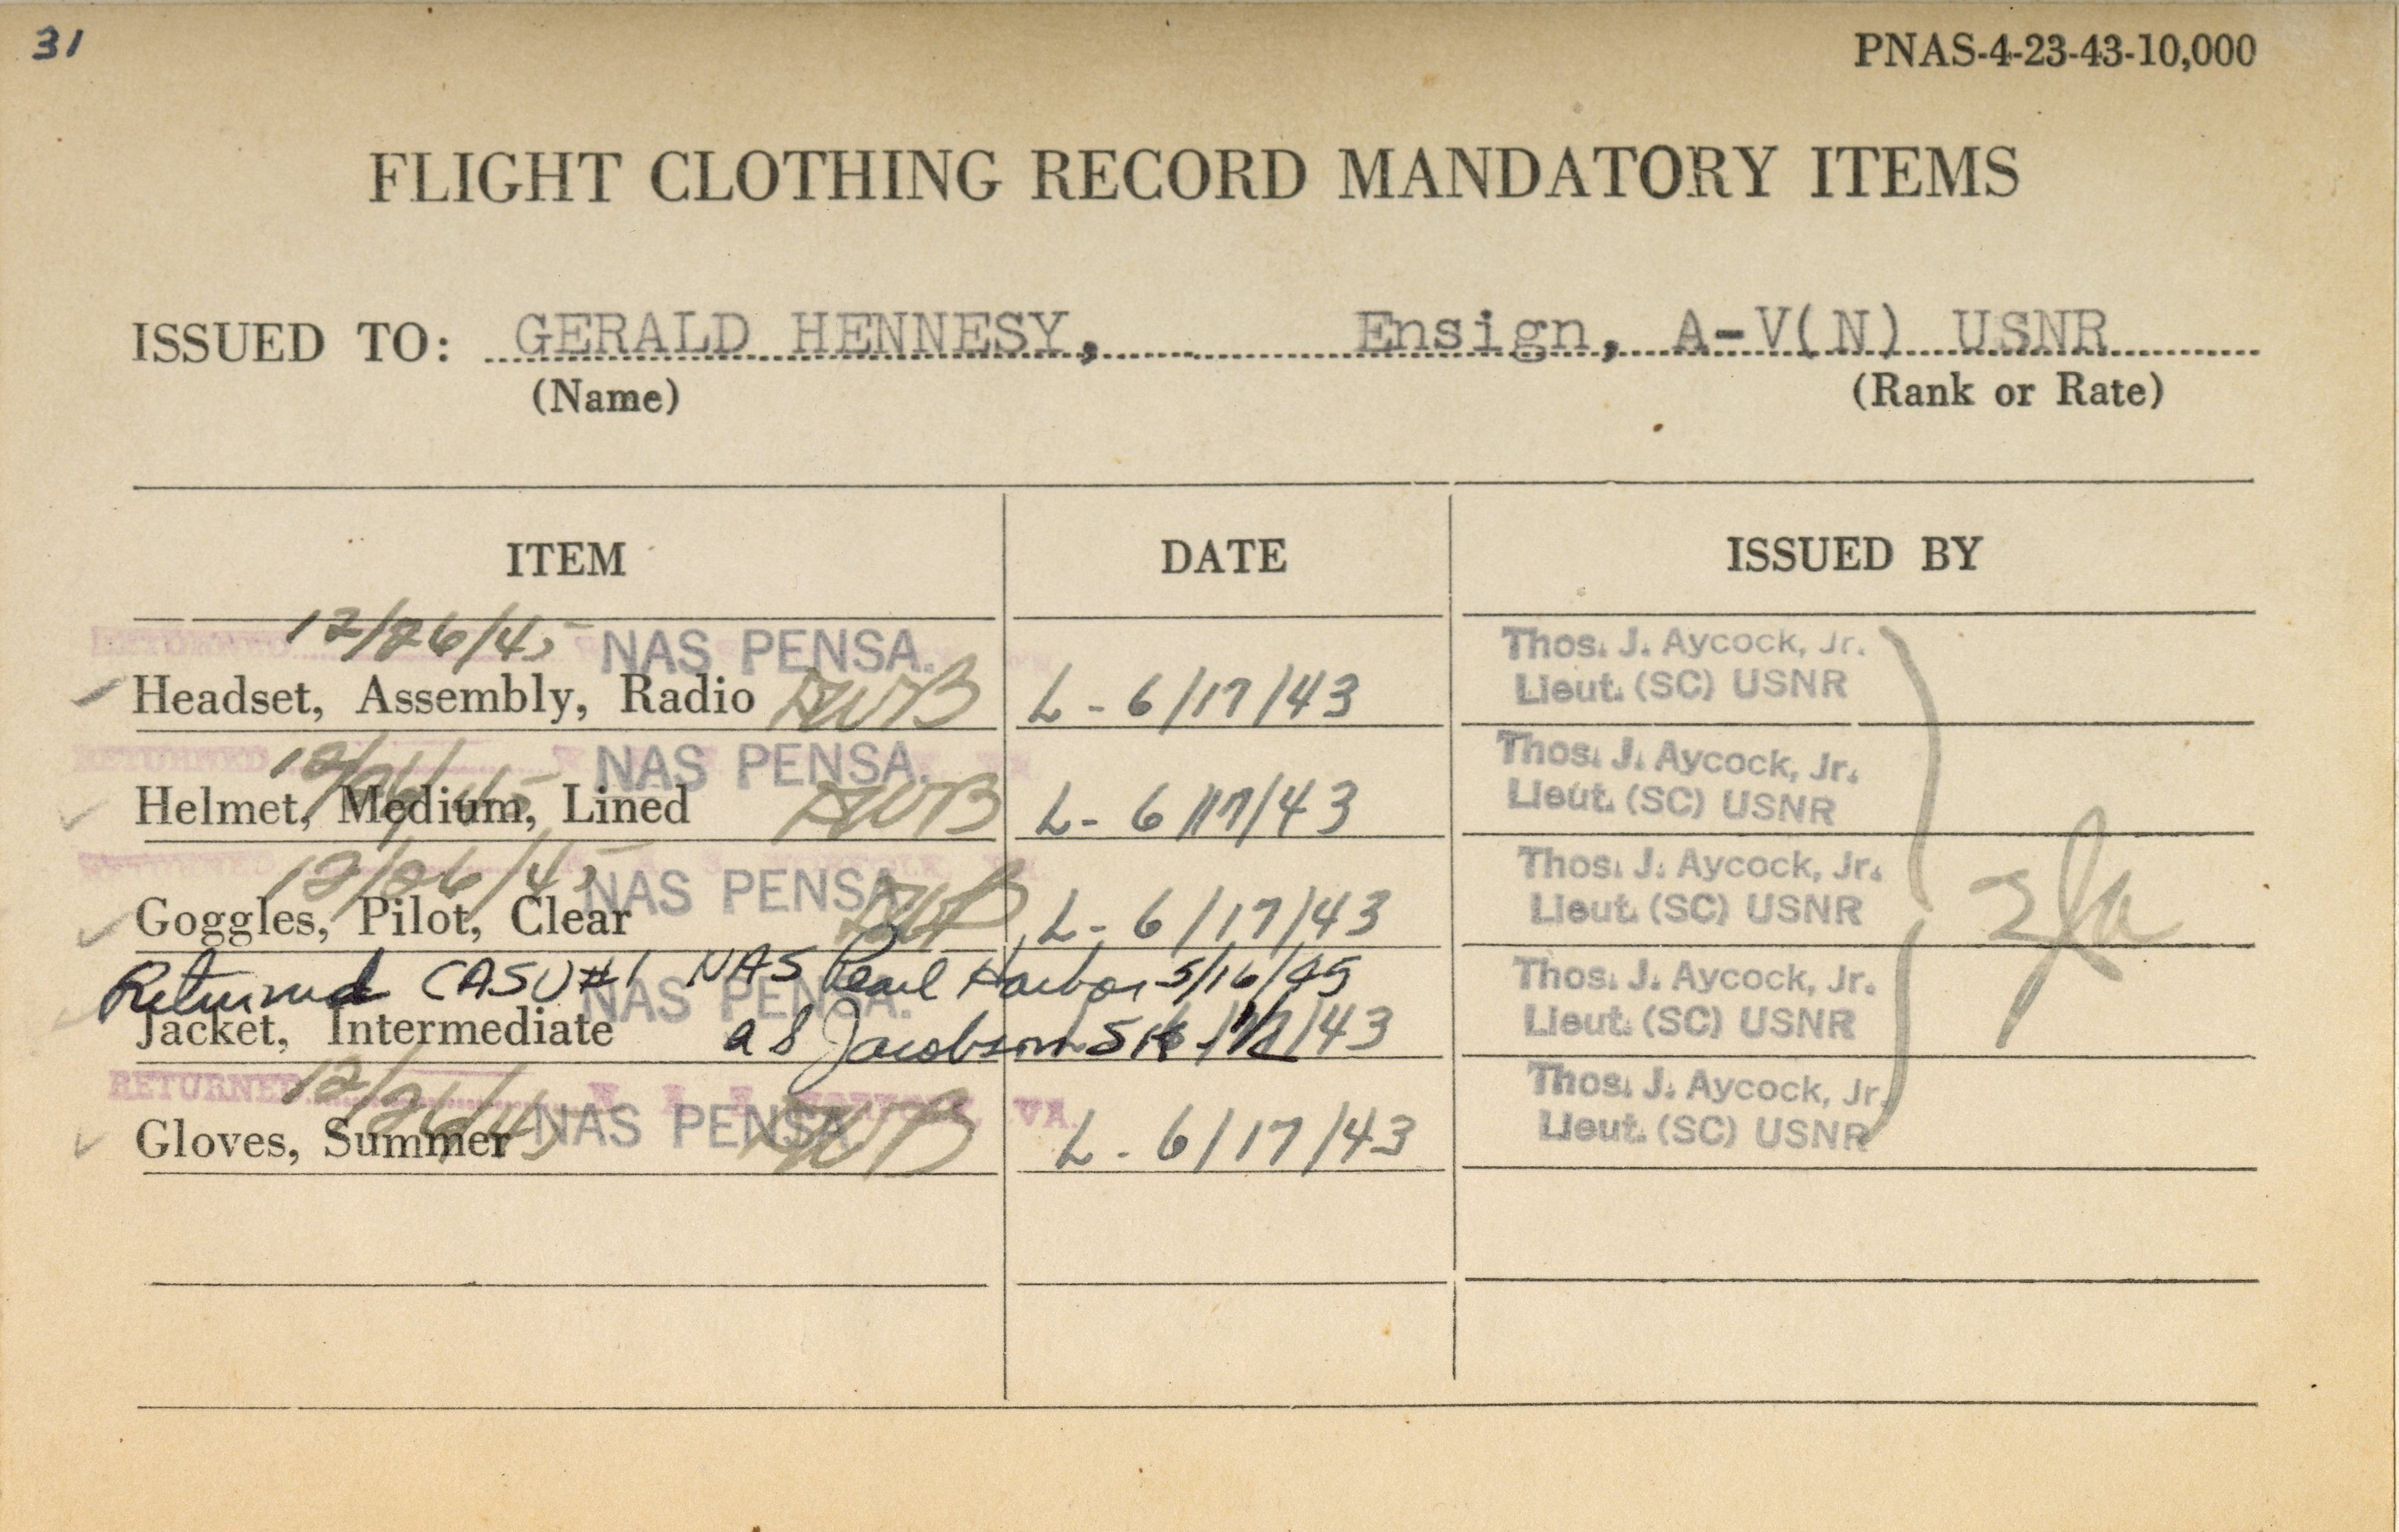 31
PNAS-4-23-43-10,000
FLIGHT CLOTHING RECORD MANDATORY ITEMS
ISSUED TO: GERALD HENNESY, Ensign, A-V(N) USNR
(Name) (Rank or Rate)
ITEM DATE ISSUED BY
RETURNED 12/26/45 NAS PENSA. Thos. J. Aycock, Jr.
Headset, Assembly, Radio L - 6/17/43 Lieut. (SC) USNR
RETURNED 12/26/45 NAS PENSA. Thos. J. Aycock, Jr.
Helmet, Medium, Lined L - 6/17/43 Lieut. (SC) USNR
RETURNED 12/26/45 NAS PENSA. Thos. J. Aycock, Jr.
Goggles, Pilot, Clear L - 6/17/43 Lieut. (SC) USNR
Returned CASU #1 NAS Pearl Harbor 5/16/45
NAS PENSA. Thos. J. Aycock, Jr.
Jacket, Intermediate a S Jacobson 6/17/43 Lieut. (SC) USNR
RETURNED 12/26/45 N A S NORFOLK, VA.
NAS PENSA Thos. J. Aycock, Jr.
Gloves, Summer L - 6/17/43 Lieut. (SC) USNR